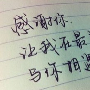 感谢你
让我在最
与你相遇